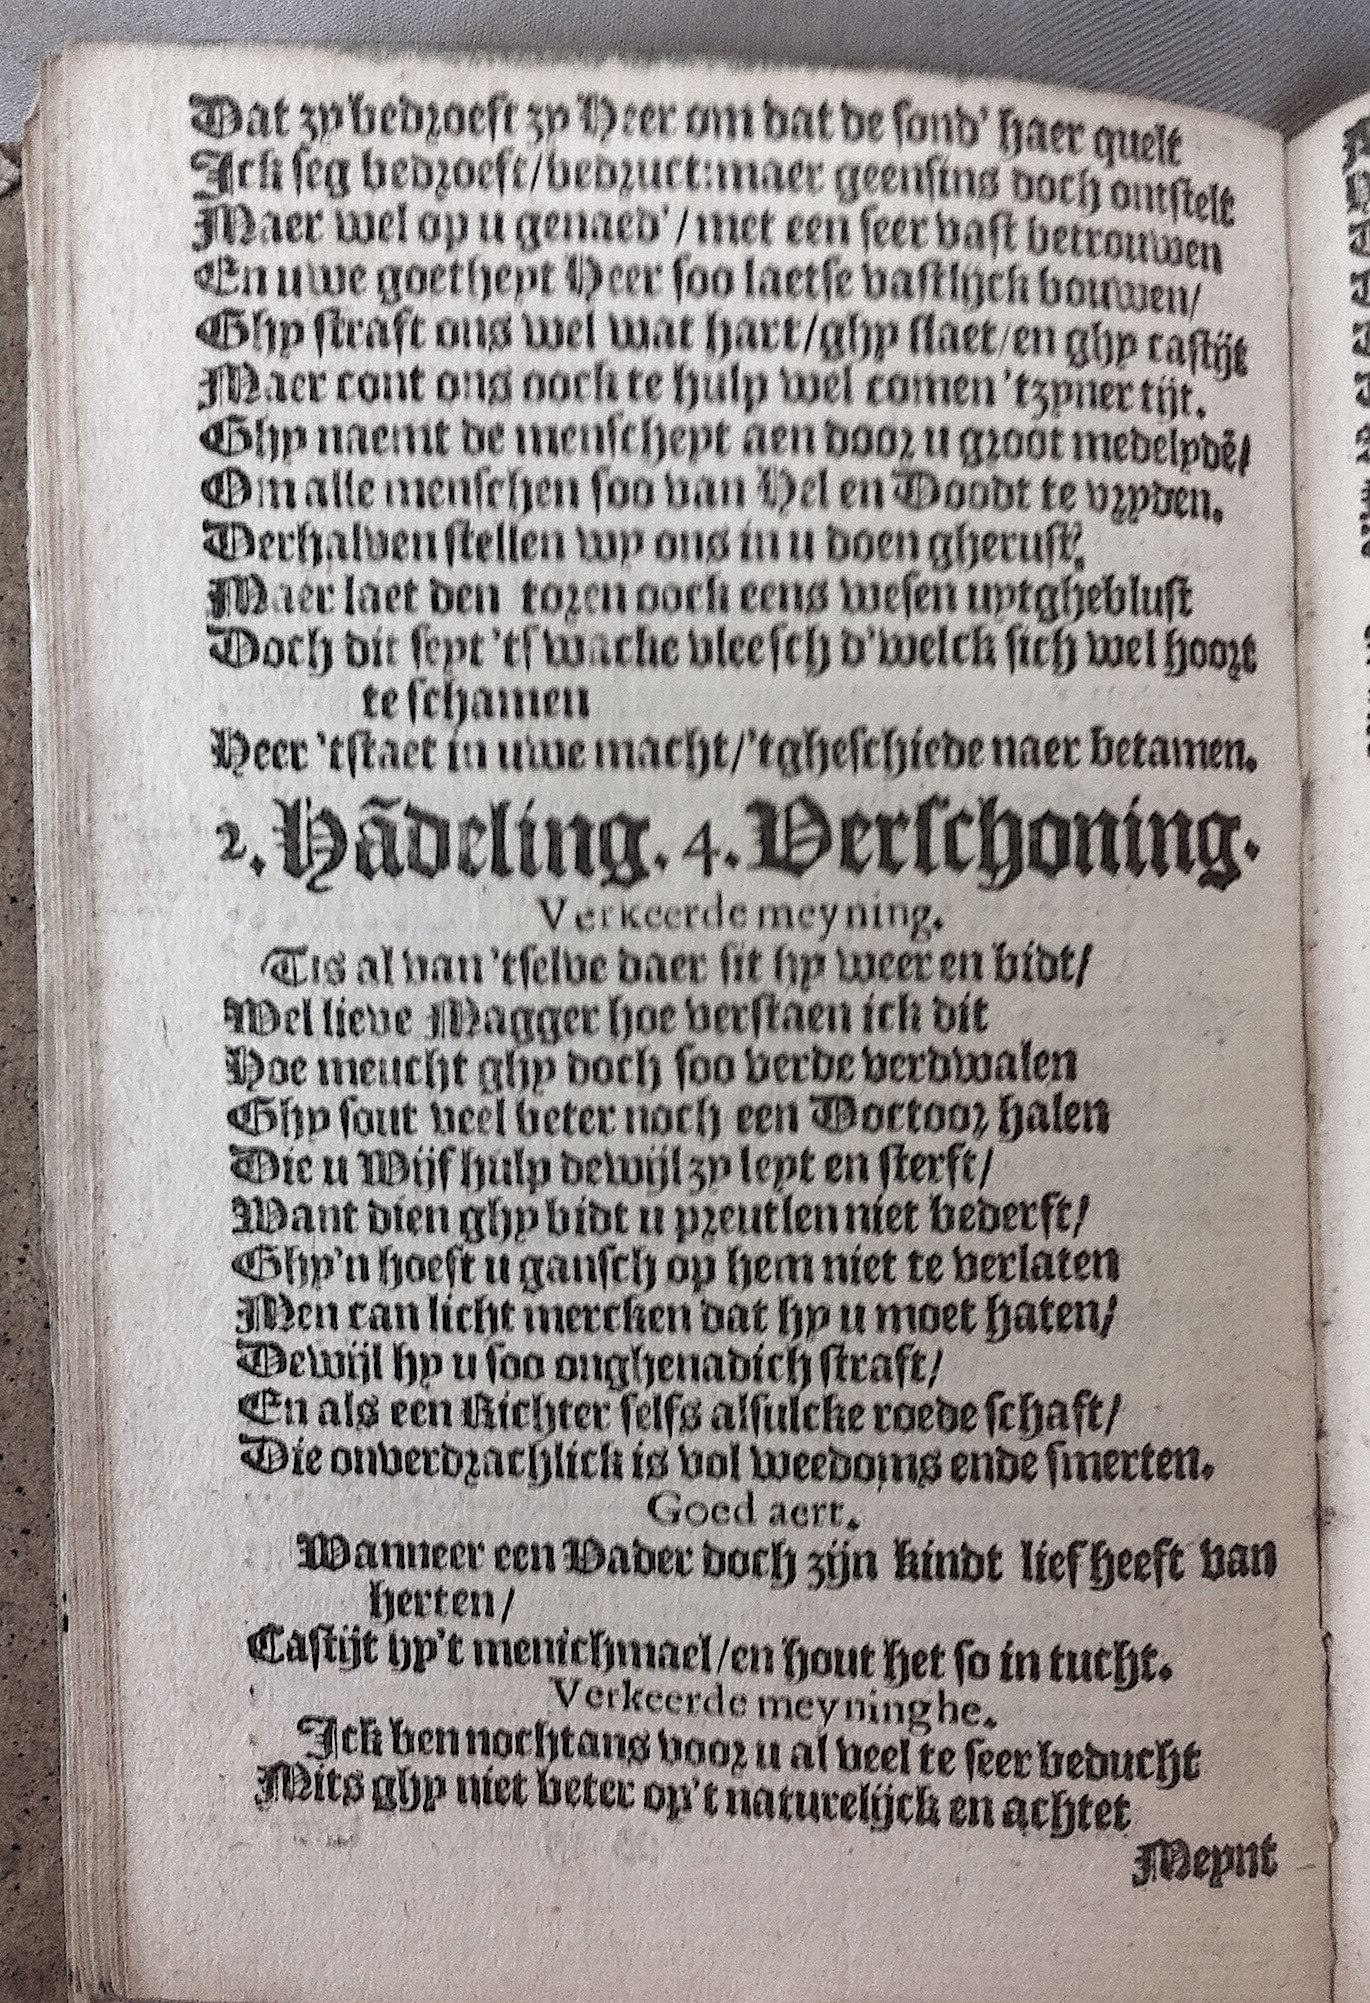 Dat zy bedroeft zy Heer om dat de sond' haer quelt
Ick seg bedroeft/bedruct:maer geensins doch ontstelt
Maer wel op u genaed'/met een seer vast betrouwen
En uwe goetheyt Heer soo laetse vastlijck bouwen/
Ghy straft ons wel wat hart/ghy slaet/en ghy castijt
Maer cont ons oock te hulp wel comen 'tzyner tijt.
Ghy naemt de menscheyt aen door u groot medelydē/
Om alle menschen soo van Hel en Doodt te vryden.
Derhalven stellen wy ons in u doen gherust,
Maer laet den toren oock eens wesen uytgheblust
Doch dit seyt 'tswacke vleesch d'welck sich wel hoort
te schamen
Heer 'tstaet in uwe macht/'tgheschiede naer betamen.
2. Hādeling. 4. Verschoning.
Verkeerde meyning.
Tis al van 'tselve daer sit hy weer en bidt/
Wel lieve Magger hoe verstaen ick dit
Hoe meucht ghy doch soo verde verdwalen
Ghy sout veel beter noch een Doctoor halen
Die u Wijf hulp dewijl zy leyt en sterft/
Want dien ghy bidt u preutlen niet bederft/
Ghy'n hoeft u gansch op hem niet te verlaten
Men can licht mercken dat hy u moet haten/
Dewijl hy u soo onghenadich straft/
En als een Richter selfs alsulcke roede schaft/
Die onverdrachlick is vol weedoms ende smerten.
Goed aert.
Wanneer een Vader doch zijn kindt lief heeft van
herten/
Castijt hy't menichmael/en hout het so in tucht.
Verkeerde meyninghe.
Ick ben nochtans voor u al veel te seer beducht
Mits ghy niet beter op't naturelijck en achtet
Meynt